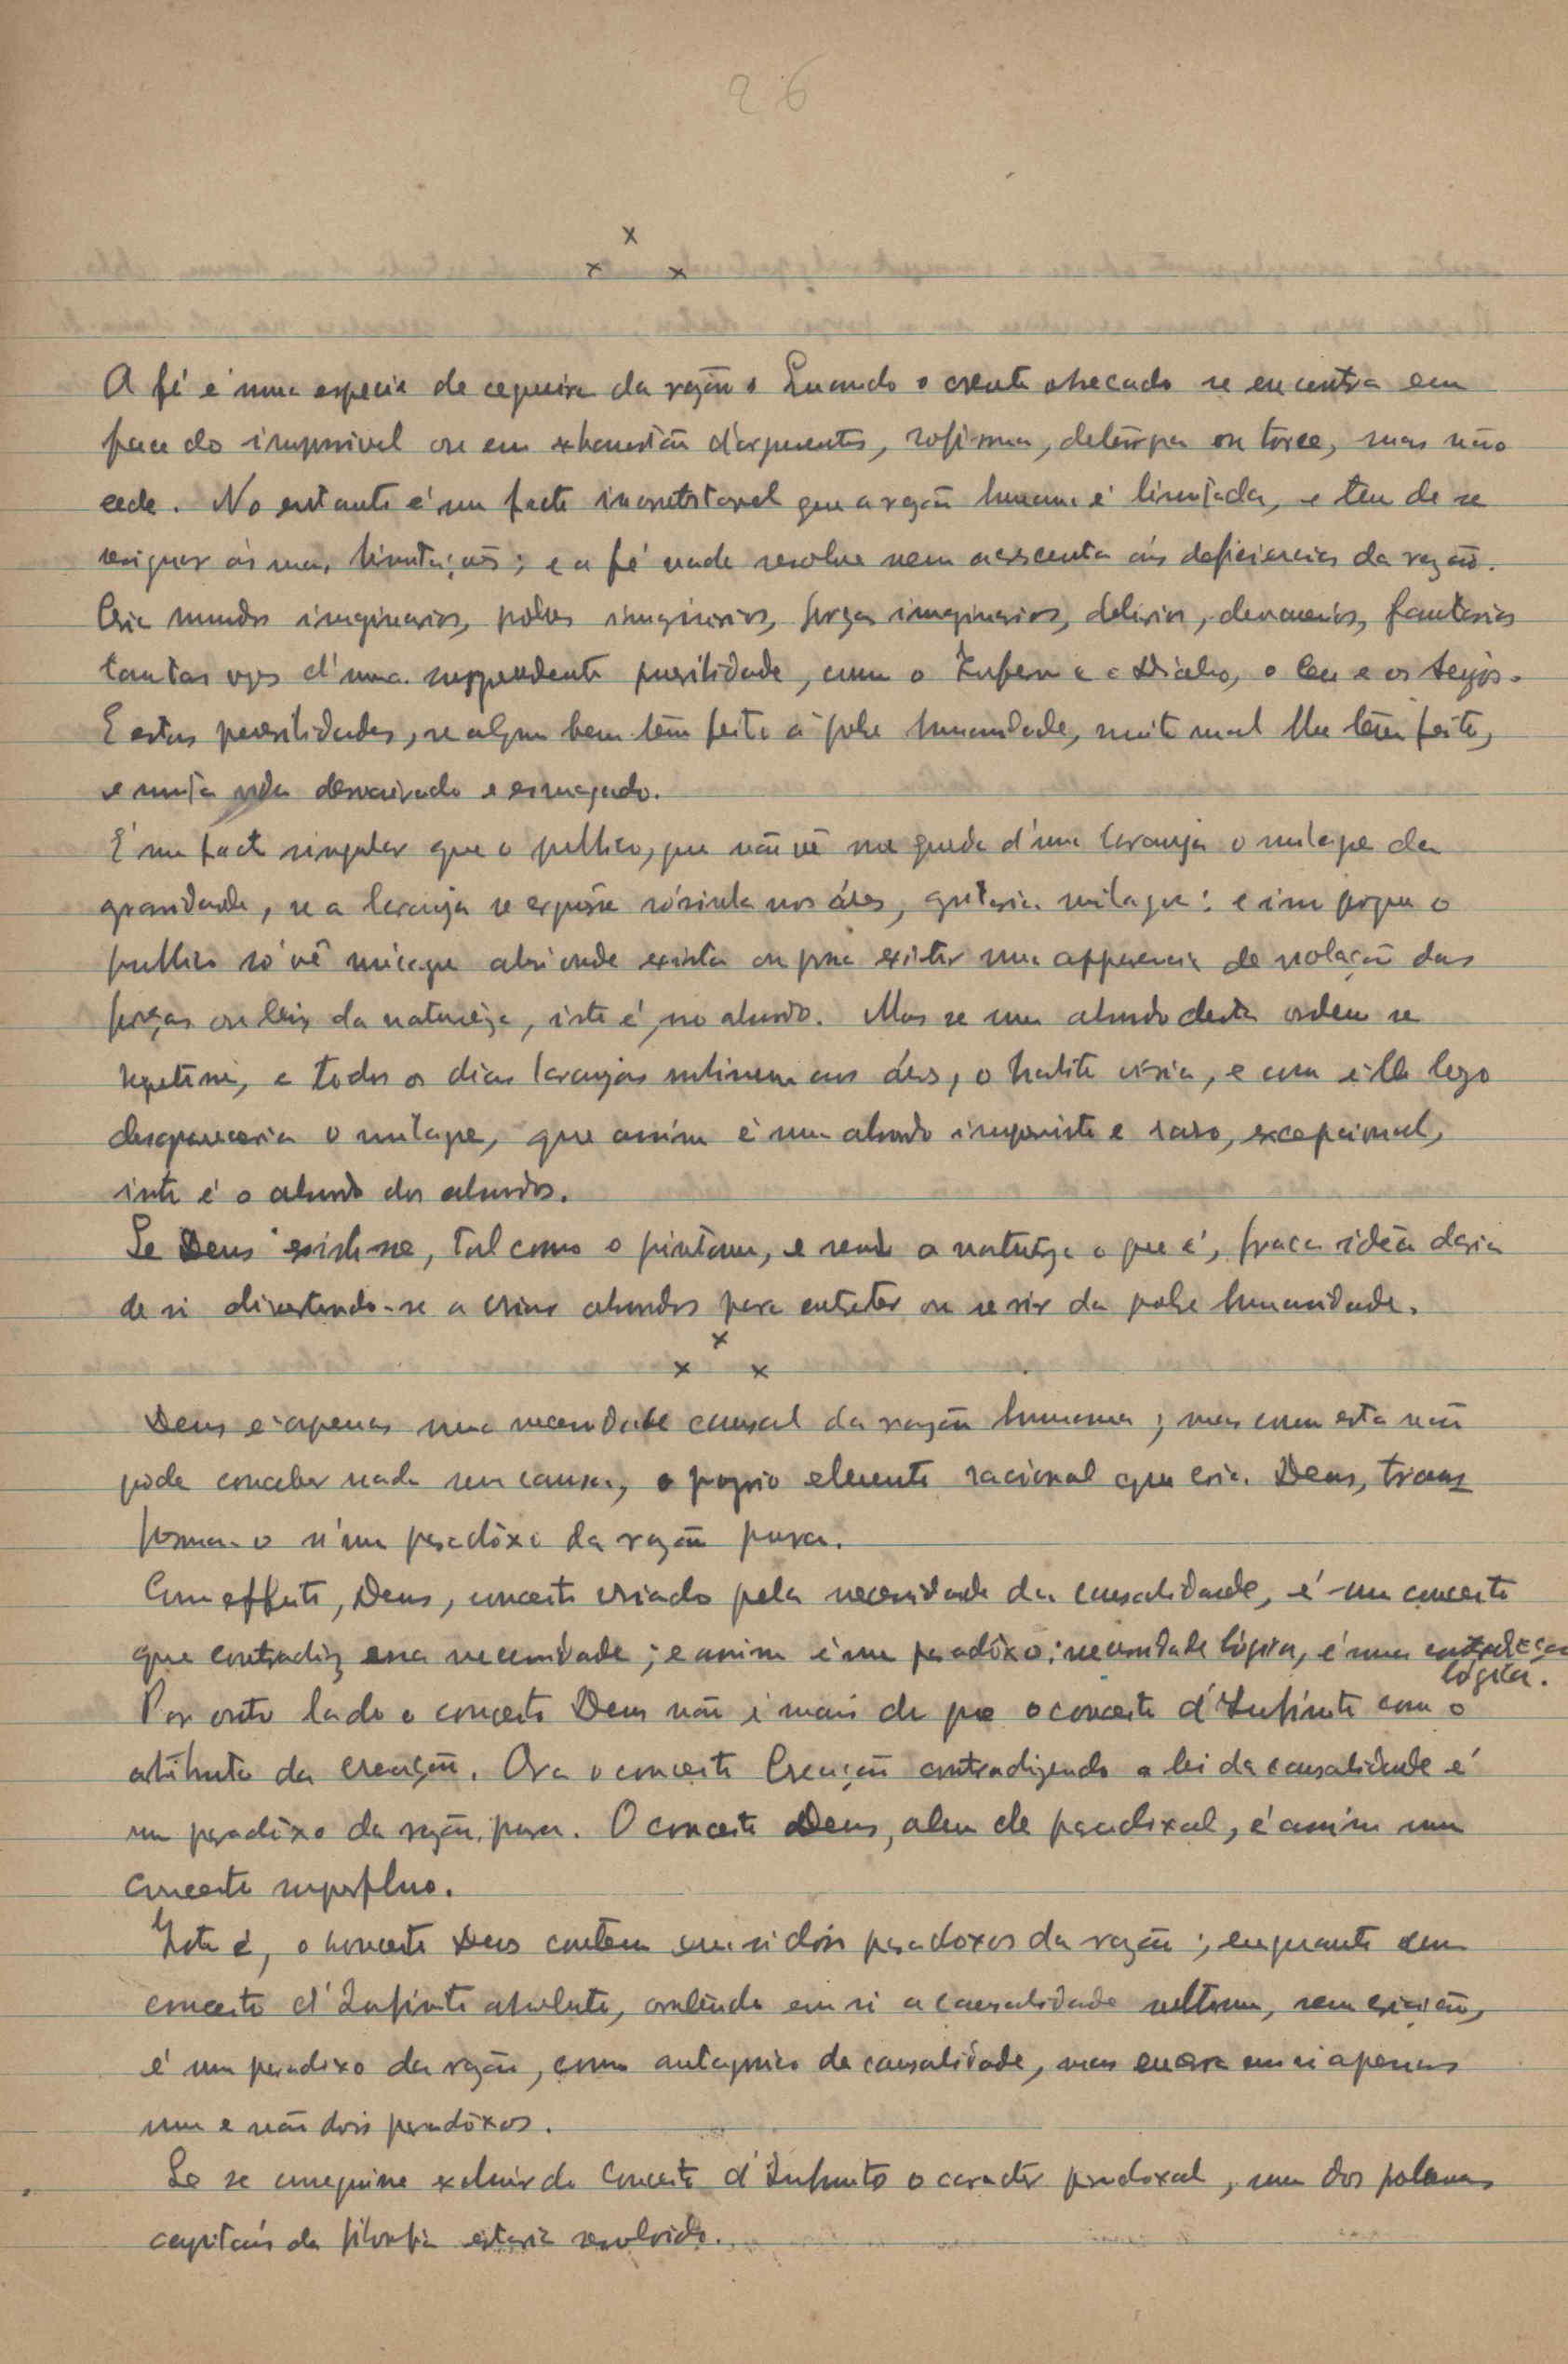 26
x
x x
A fé é uma especie de cegueira da razão. Quando o crente obsecado se encontra em
face do impossivel ou em exhaustão d'argumentos, sofisma, detúrpa ou torce, mas não
cede. No entanto é um facto incontestavel que a razão humana é limitada, e tem de se
resignar ás suas limitações; e a fé nada resolve nem acrescenta ás deficiencias da razão.
Cria mundos imaginarios, imaginarios, forças imaginarias, delirios, devaneios, fantasias
tantas vezes d'uma surprendente puerilidade, como o Inferno e o Diabo, o Ceu e os Anjos.
E estas puerilidades, se algum bem têm feito á pobre humanidade, muito mal lhe têm feito,
e muita vida desvairado e esmagado.
É um facto singular que o publico, que não vê na queda d'uma laranja o milagre da
gravidade, se a laranja se erguesse sósinha nos áres, gritaria milagre: e isso porque o
publico só vê milagre ahi onde exista ou possa existir uma apparencia de violação das
forças ou leis da natureza, isto é, no absurdo. Mas se um absurdo desta ordem se
repetisse, e todos os dias laranjas subissem aos áres, o habito viria, e com elle logo
desapareceria o milagre, que assim é um absurdo imprevisto e raro, excepcional,
isto é o absurdo dos absurdos.
Se Deus existisse, tal como o pintam, e sendo a natureza o que é, fraca idêa daria
de si divertindo-se a criar absurdos para entreter ou se rir da pobre humanidade.
x
x x
Deus é apenas uma necessidade causal da razão humana; mas como esta não
pode conceber nada sem causa, o proprio elemento racional que cria Deus, trans
forma-o n'um paradôxo da razão pura.
Com effeito, Deus, conceito criado pela necessidade da causalidade, é um conceito
que contradiz essa necessidade; e assim é um paradôxo: necessidade lógica, é uma contradição
lógica.
Por outro lado o conceito Deus não é mais do que o conceito d'Infinito com o
atributo da creação. Ora o conceito Creação contradizendo a lei da causalidade é
um paradôxo da razão pura. O conceito Deus, alem de paradoxal, é assim um
conceito superfluo.
Isto é, o conceito Deus contem em si dois paradoxos da razão; emquanto um
conceito d'Infinito absoluto, contendo em si a causalidade, sem criação,
é um paradoxo da razão, como antagonico da causalidade, mas encerra em si apenas
um e não dois paradôxos.
Se se conseguisse excluir do conceito d'Infinito o caracter paradoxal, um dos problemas
capitaes da filosofia estaria resolvido.